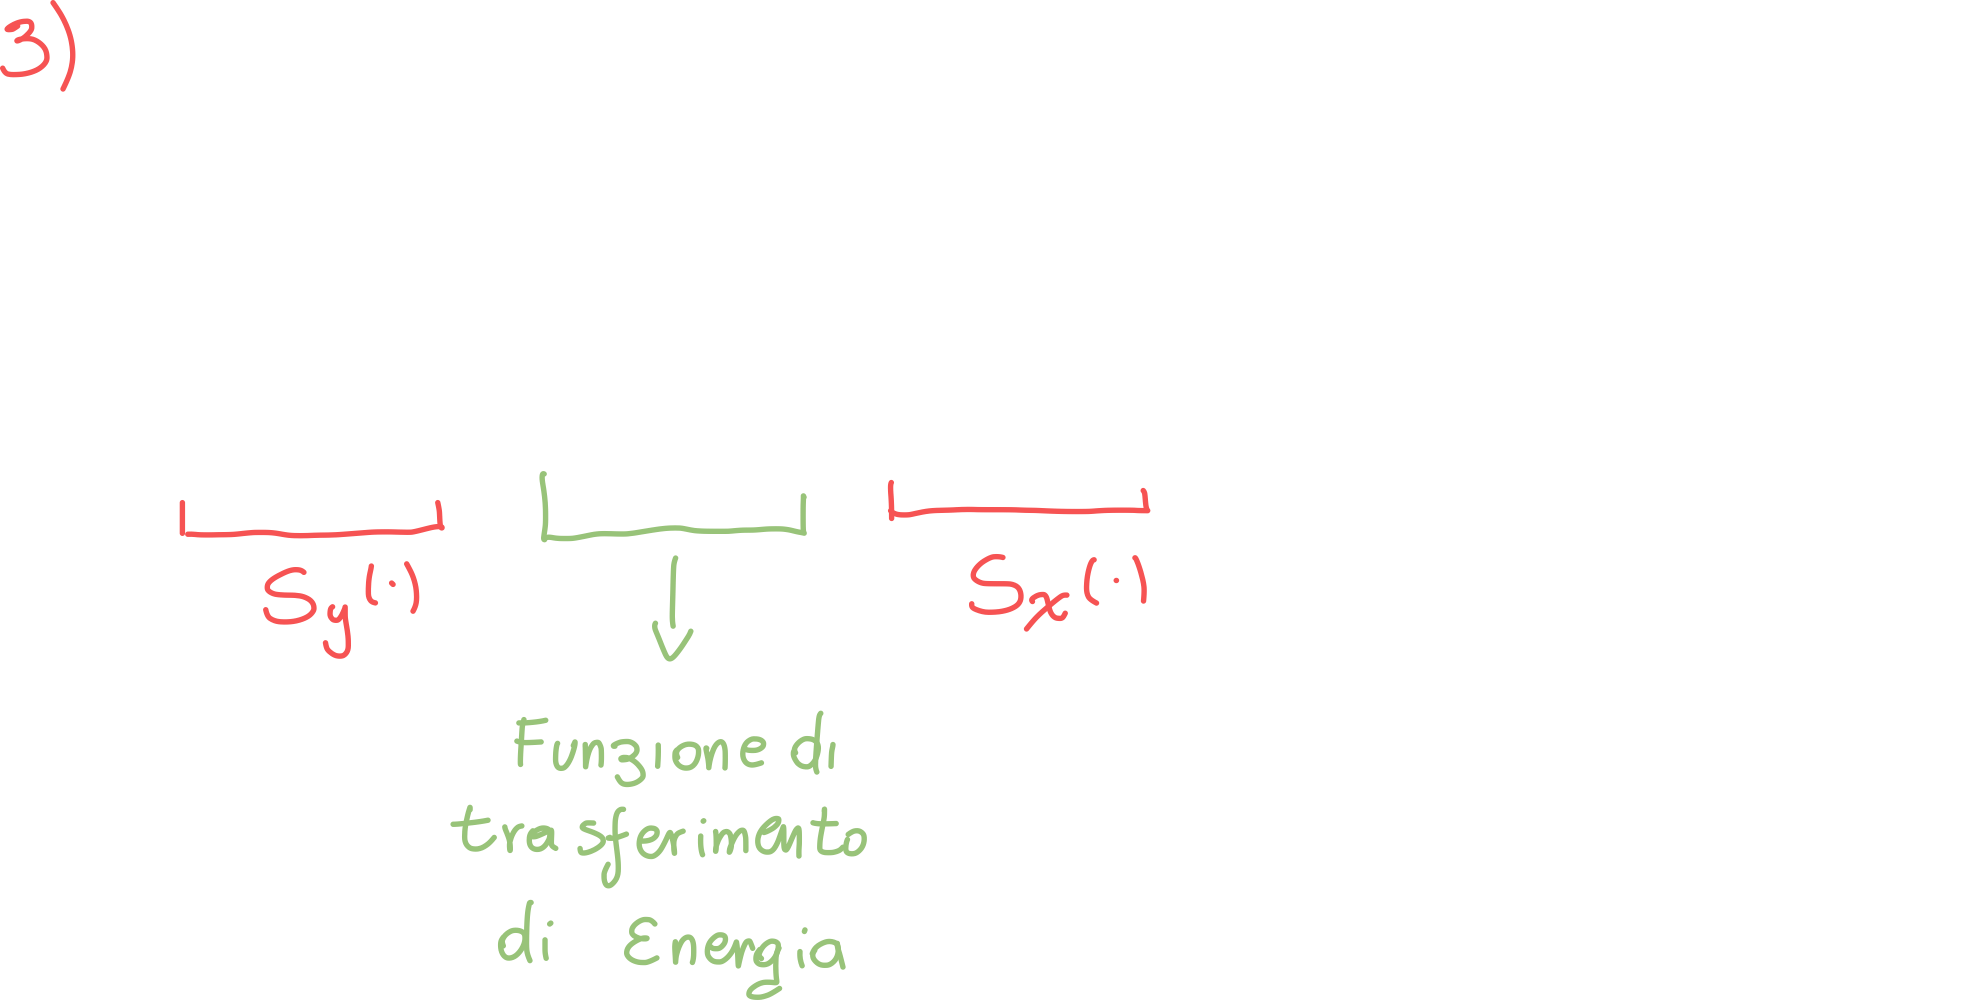 3)
Sy(·) Sx(·)
Funzione di
trasferimento
di Energia